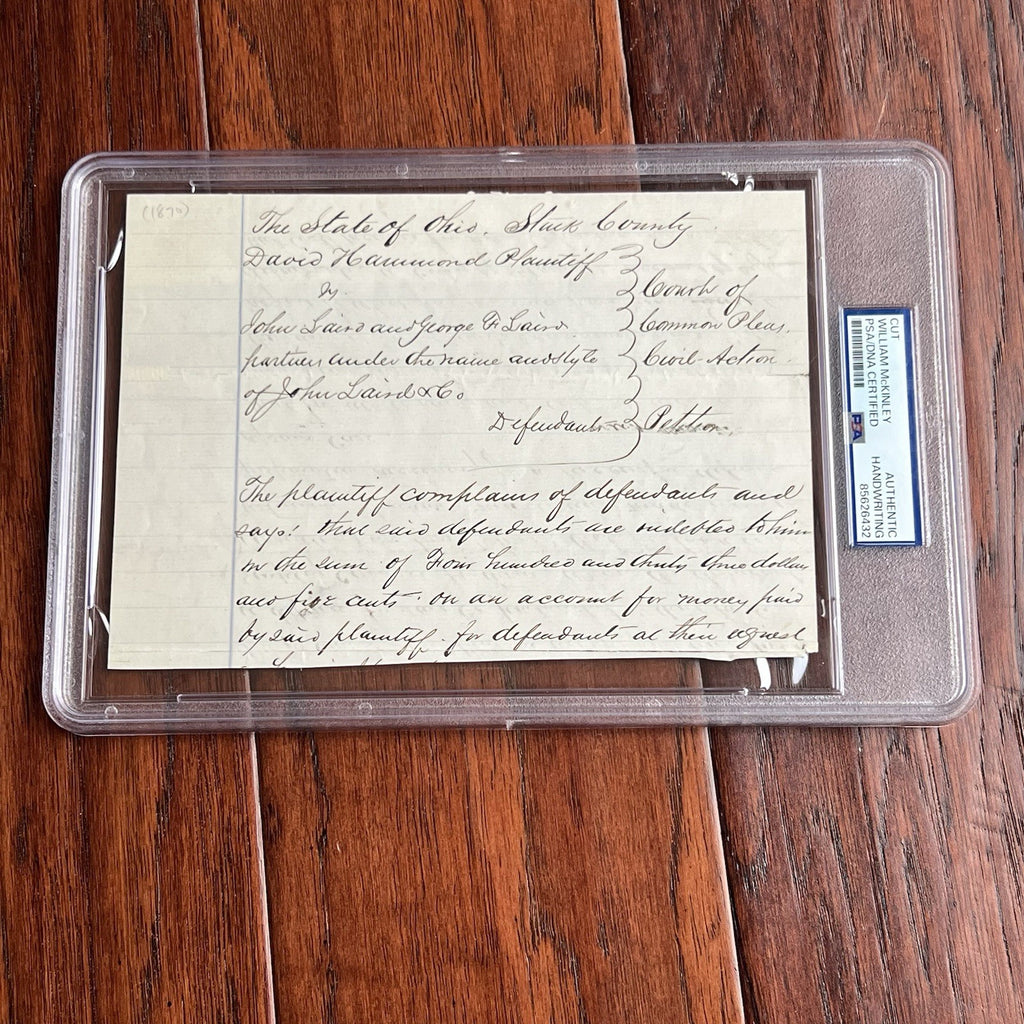 (1870)
The State of Ohio, Stark County
David Hammond Plaintiff
vs.
John Laird and George F. Laird
partners under the name and style
of John Laird & Co
Defendants
Court of
Common Pleas.
Civil Action
Petition.
The plaintiff complains of defendants and
says: that said defendants are indebted to him
in the sum of Four hundred and thirty three dollars
and five cents on an account for money paid
by said plaintiff for defendants at their request
CUT
WILLIAM McKINLEY
PSA/DNA CERTIFIED
PSA
AUTHENTIC
HANDWRITING
85626432